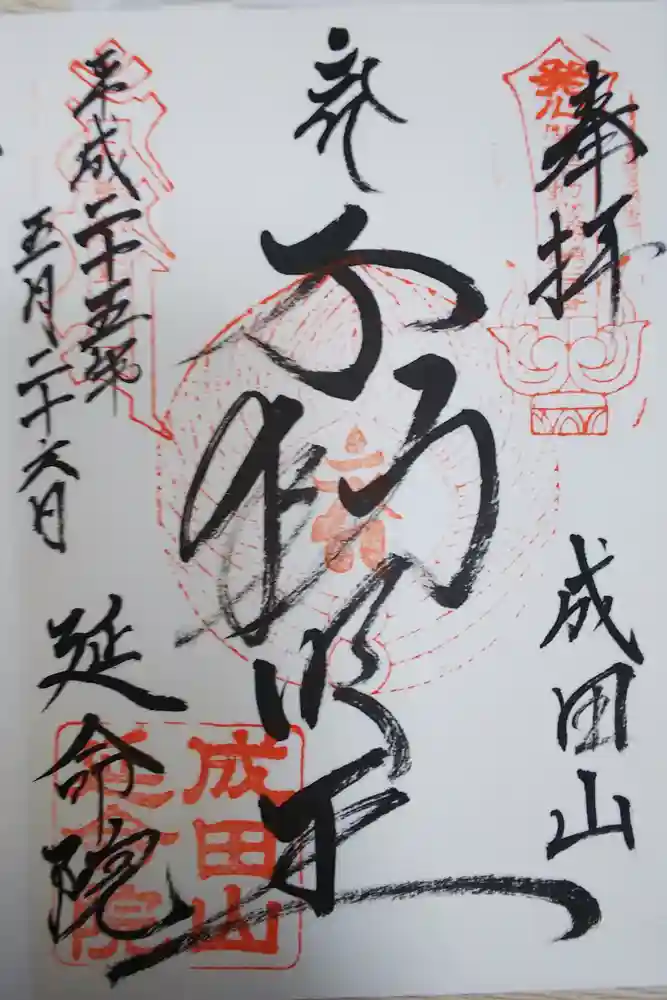 奉拝
成田山
不動明王
平成二十五年
五月二十六日
延命院
成田山
延命院